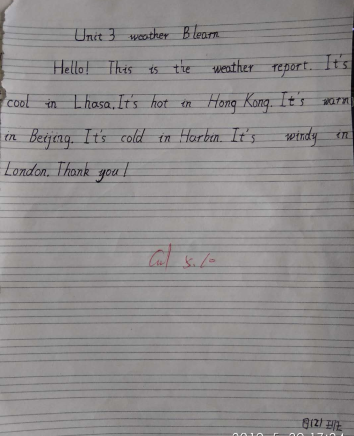 Unit 3 weather B learn
Hello! This is the weather report. It's
cool in Lhasa. It's hot in Hong Kong. It's warm
in Beijing. It's cold in Harbin. It's windy in
London. Thank you!
5.10